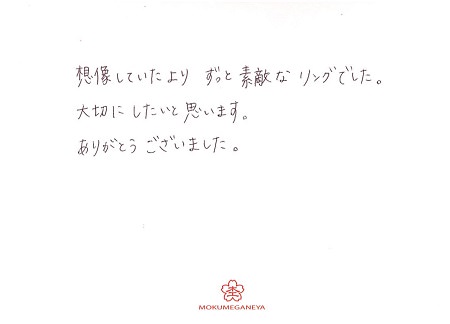 想像していたより ずっと素敵な リングでした。
大切に したいと思います。
ありがとう ございました。
MOKUMEGANEYA